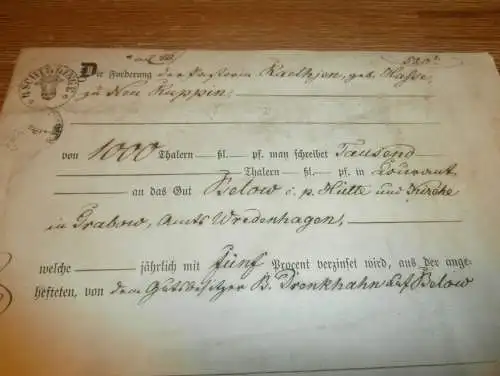 Die Forderung der Pastorin Kaehtjen, geb. Hasse,
zu Neu Ruppin.
von 1000 Thalern — ßl. — pf. man schreibet Tausend
Thalern — ßl. — pf. in Courant
an das Gut Below c. p. Hütte und Kirche
in Grabow, Amts Wredenhagen,
welche jährlich mit Fünf Procent verzinset wird, aus der ange-
hefteten, von dem Gutsbesitzer B. Drenkhahn auf Below